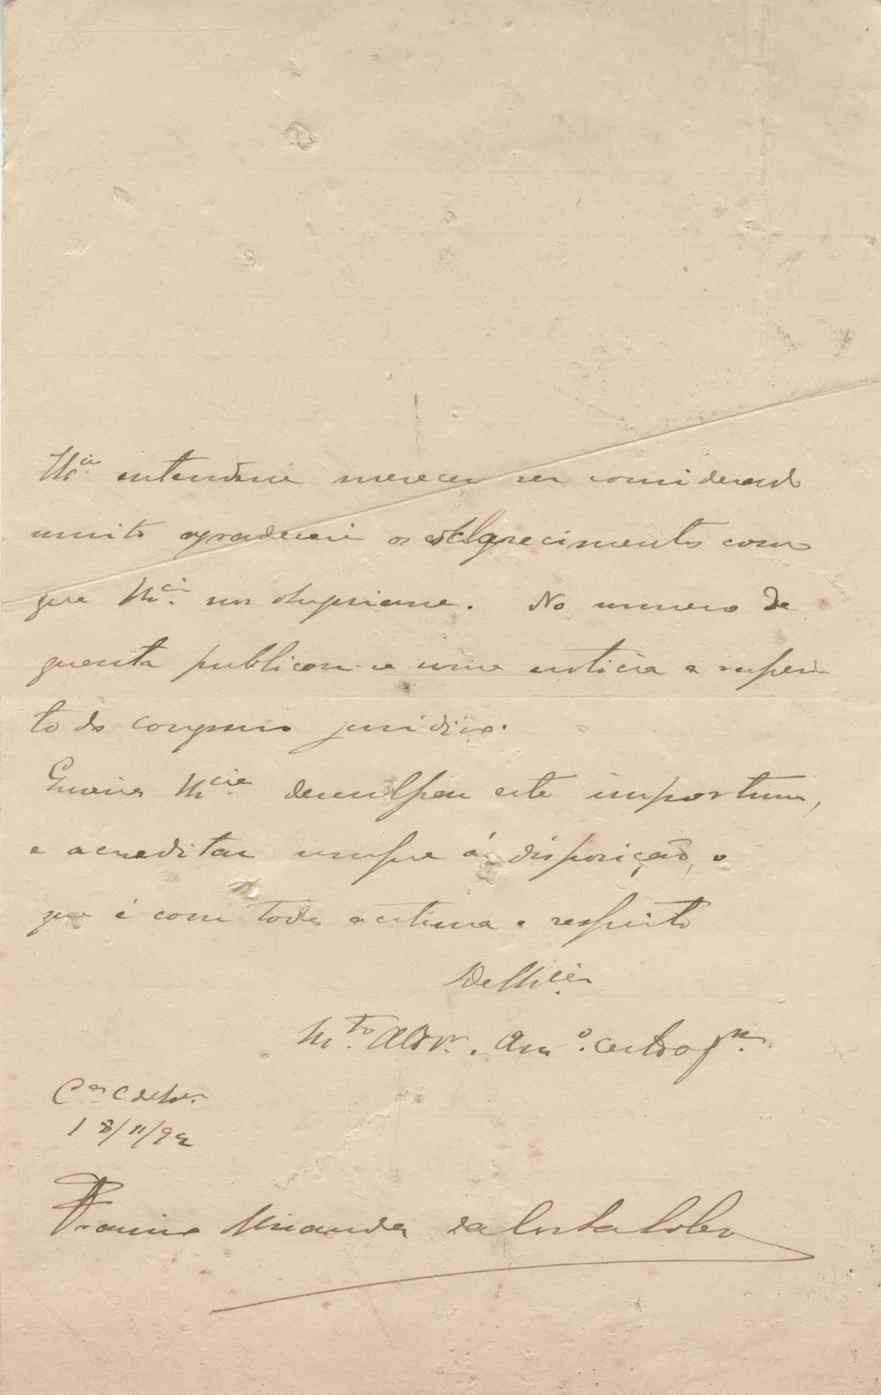 V.cia entender merecer ser considerado
muito agradecerei os esclarecimentos com
que V.cia nos
. No numero de
quenta publicou-se uma noticia a respei-
to do congresso juridico.
Queira V.cia desculpar este importuno,
e acreditar sempre á disposição, o
que é com toda a estima e respeito
De V.cia
M.to Ador. Am.o
C.a
18/11/92
Francisco Miranda da Costa Lobo